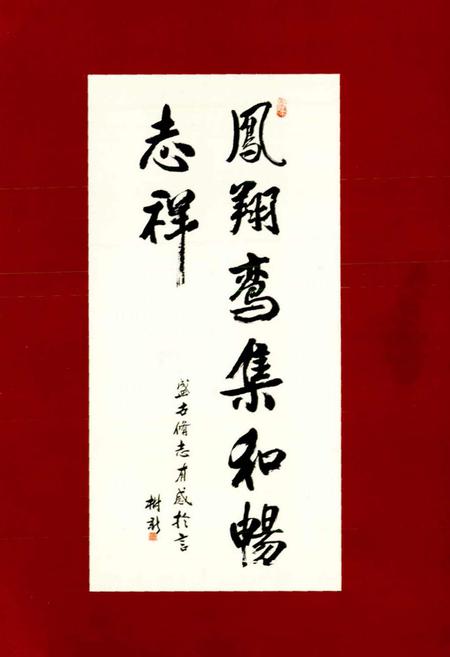 鳳翔鸾集和暢
志祥
盛古脩志有感於言
樹新